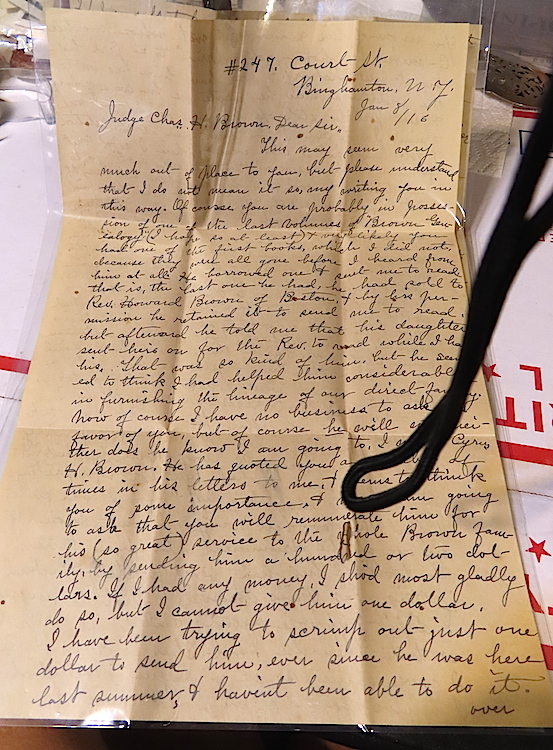 #247. Court St.
Binghamton, N.Y.
Jan 8/16
Judge Chas. H. Brown, Dear Sir,
This may seem very
much out of place to you, but please understand
that I do not mean it so, my writing you in
this way. Of course you are probably in posses-
sion of one of the last volumes of Brown Gen-
ealogy (I hope so at least) & very likely you
had one of the first books, which I did not,
because they were all gone before I heard from
him at all. He borrowed one & sent me to read
that is, the last one he had, he had sold to
Rev. Howard Brown of Boston, & by his per-
mission he retained it to send me to read,
but afterward he told me that his daughter
sent here on for the Rev. to read while I had
his. That was so kind of him, but he seem-
ed to think I had helped him considerable
in furnishing the lineage of our direct family.
now of course I have no business to ask
favor of you, but of course he will
ther does he know I am going to, I Cyrus
H. Brown, He has quoted you a of
times in his letters to me, & seems to think
you of some importance, & am going
to ask that you will remunerate him for
his (so great) service to the whole Brown fam-
ily, by sending him a hundred or two dol-
lars. If I had any money, I shod most gladly
do so, but I cannot give him one dollar.
I have been trying to scrimp out just one
dollar to send him, ever since he was here
last summer, & havent been able to do it.
over
RIT
L